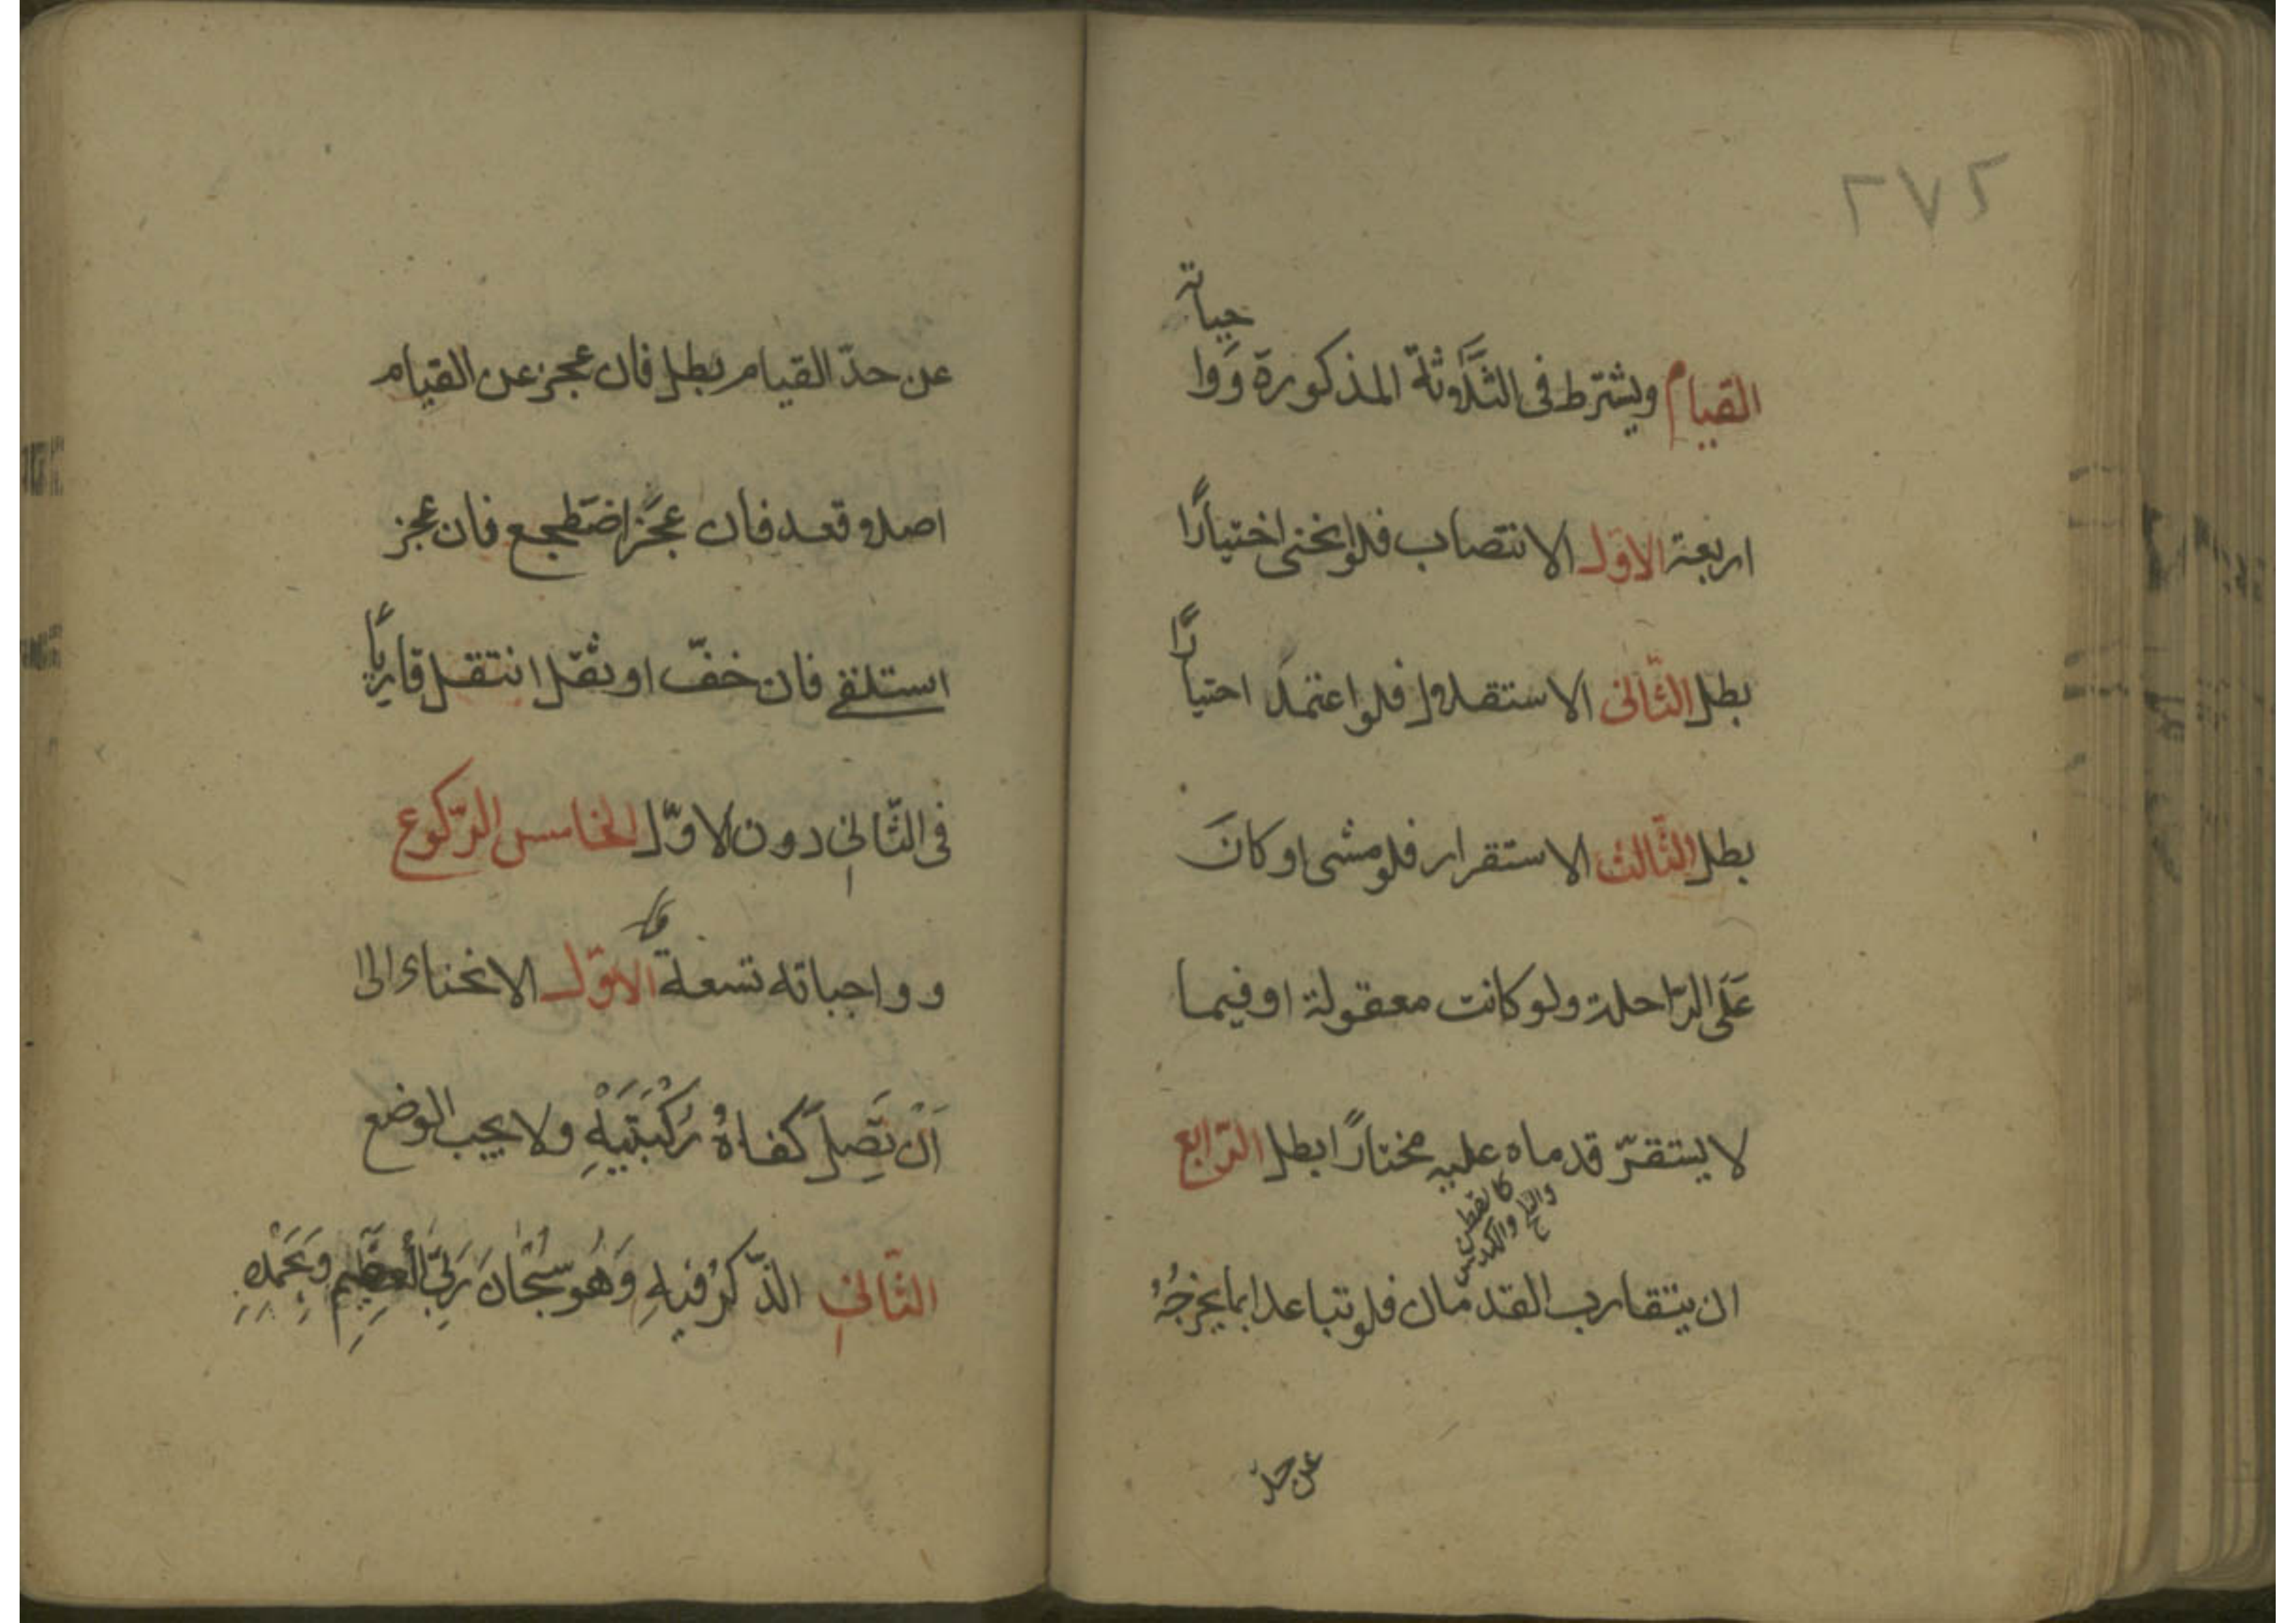 ٢٧٢
القيام ويشترط فى الثَّلاثة المذكورة وَوا
جباته
اربعة الاوّل الانتصاب فلو انحنى اختيارًا
بطل الثّانى الاستقلال فلو اعتمدَ اختيا
رًا
بطل الثّالث الاستقرار فلو مشى او كانَ
عَلَى الرّاحلة ولو كانت معقولة او فيما
لا يستقرّ قدماه عليه مختارًا بطل الرّابع
كالقطن
والثلج والكدس
ان يتقارب القدمان فلو تباعدا بما يخرجُهُ
عن حدّ
عن حدّ القيام بطل فان عجز عن القيام
اصلا قعد فان عجَز اضطجع فان عجز
استلقى فان خفّ او ثقل انتقل قارِيًا
فى الثّانى دون الاوّل الخامس الرّكوع
و واجباته تسعة الاوّل الانحناء الى
اَنْ تَصِلَ كفاهُ رُكْبَتَيْهِ ولا يجب الوضع
الثّانى الذّكرُ فيهِ وَهُوَ سُبْحَانَ رَبِّىَ الْعَظِيمِ وَبِحَمْدِهِ